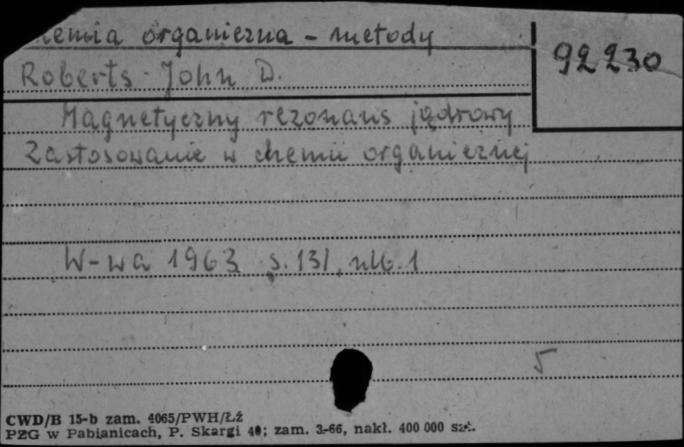 hemia organiczna - metody
92230
Roberts John D.
Magnetyczny rezonans jądrowy
Zastosowanie w chemii organicznej
W-wa 1963 s. 131, nlb. 1
5
CWD/B 15-b zam. 4065/PWH/ŁŻ
PZG w Pabianicach, P. Skargi 40; zam. 3-66, nakł. 400 000 szt.